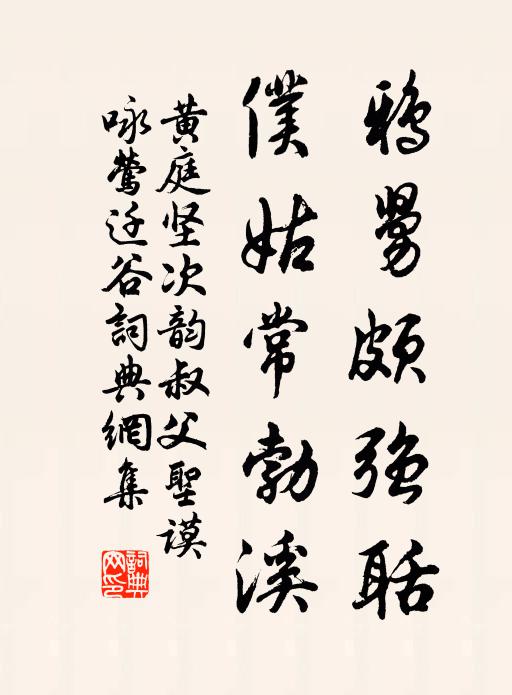 鴉舅頗強聒
僕姑常勃溪
黄庭坚次韵叔父聖謨
咏鶯迁谷詞典網集
詞典網印